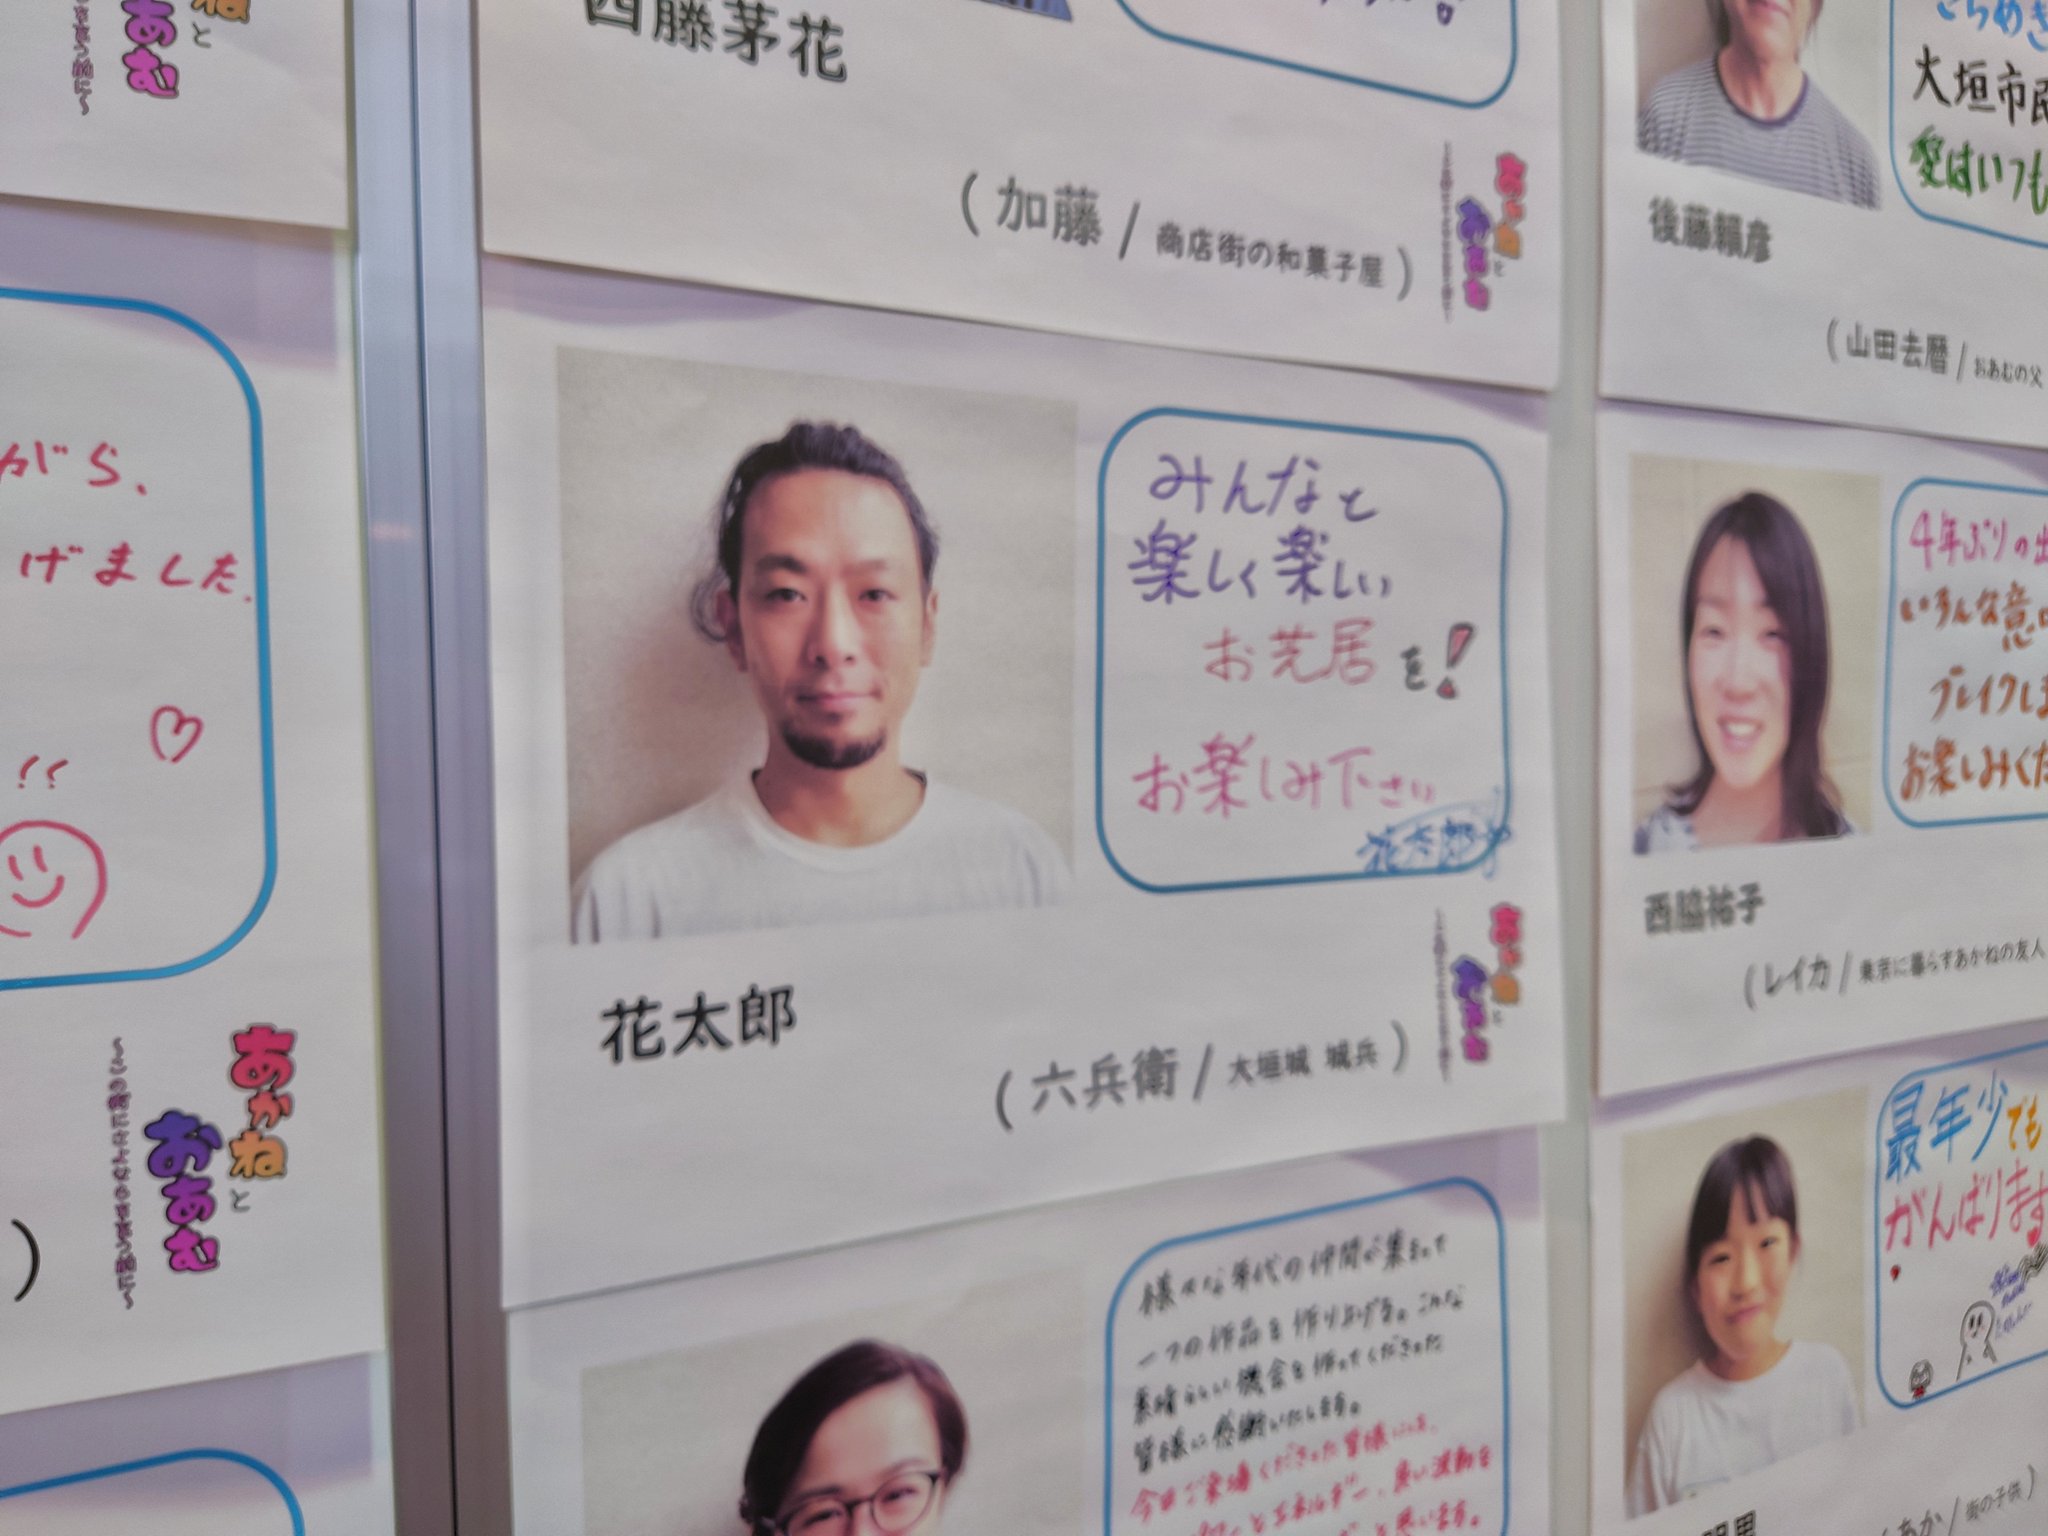 あむ
と
西藤茅花
(加藤/商店街の和菓子屋)
あかねと
おあむ
大垣市民
愛はいつも
後藤頼彦
(山田去暦/おあむの父
がら、
げました。
!!
あかねと
おあむ
～この街にさよならを言う前に～
)
みんなと
楽しく楽しい
お芝居を!
お楽しみ下さい
花太郎
花太郎
(六兵衛/大垣城 城兵)
あかねと
おあむ
4年ぶりの出
いろんな意
ブレイクしま
お楽しみくだ
西脇祐子
(レイカ/東京に暮らすあかねの友人
様々な年代の仲間が集まって
一つの作品を作り上げる。こんな
素晴らしい機会を作ってくださった
皆様に感謝いたします。
今日ご来場くださった皆様には、
とエネルギー、良い波動を
と思います。
最年少でも
がんばります
あか/街の子供)